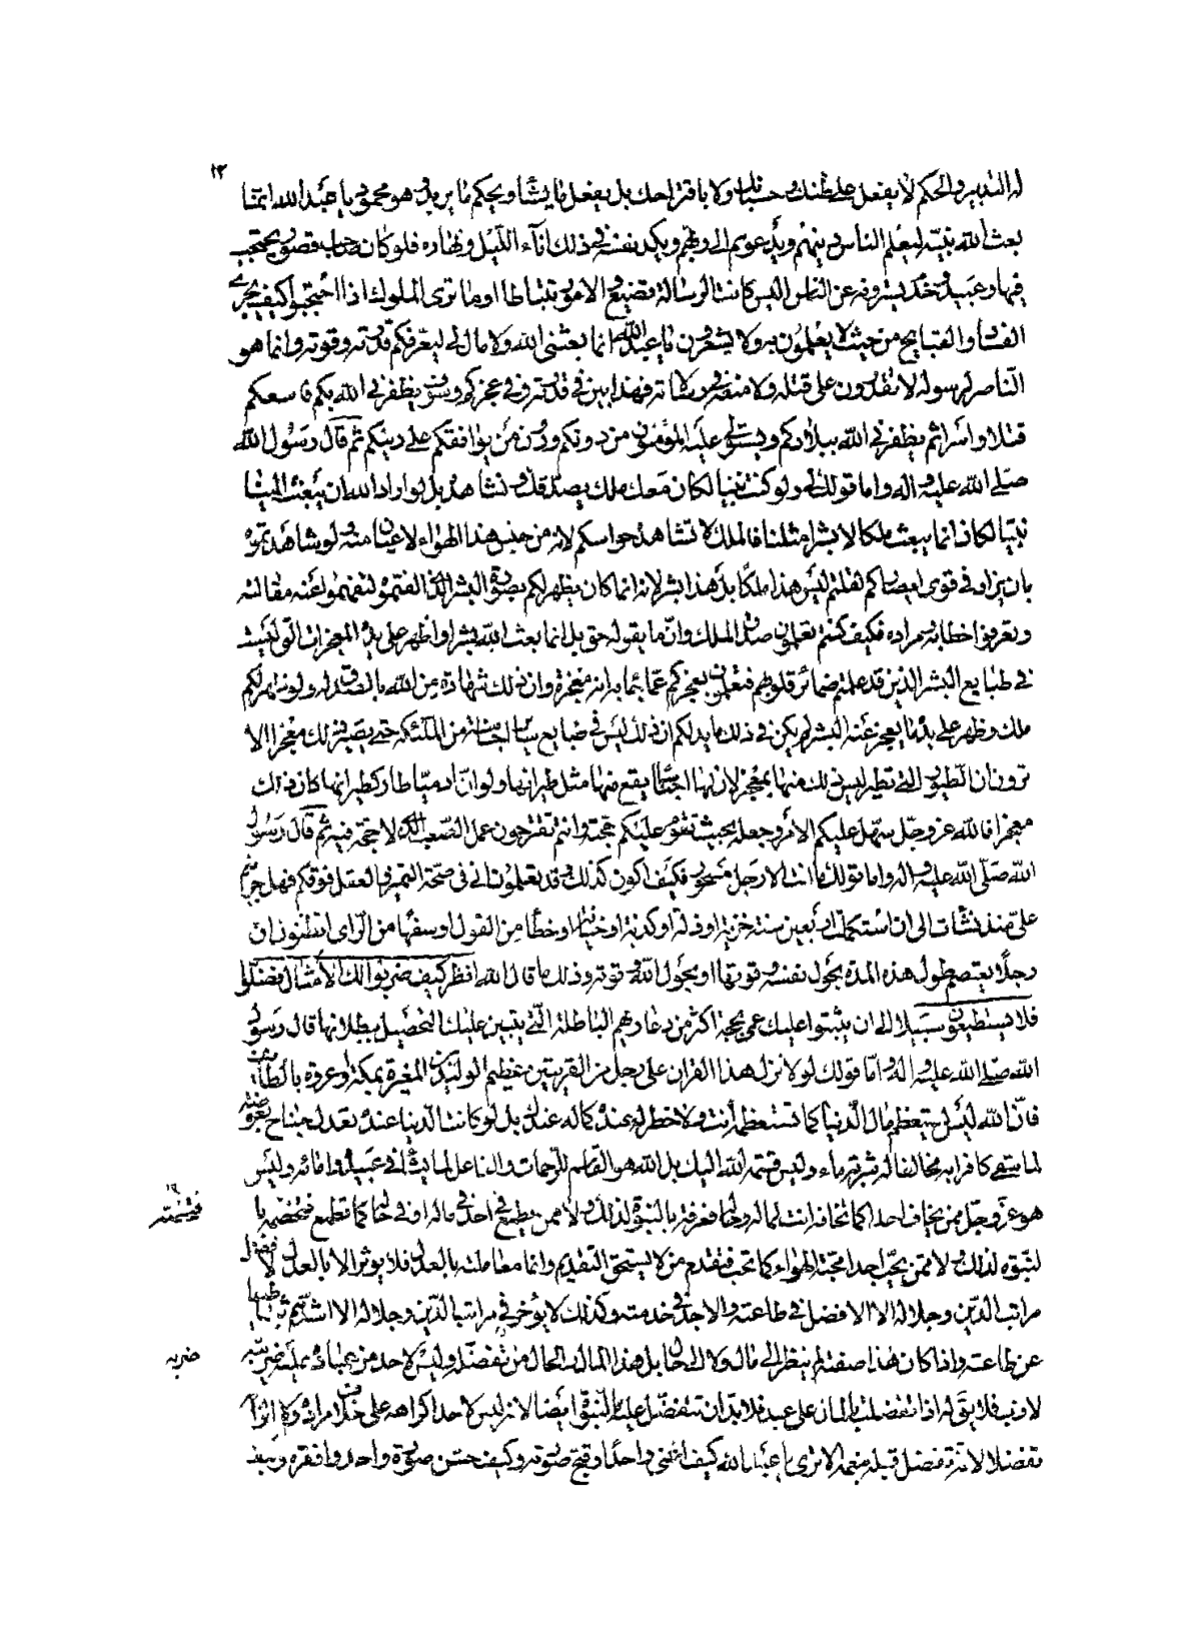 ١٣
له التدبير والحكم لا يفعل على ظنك وحسبانك ولا باقتراحك بل يفعل ما يشاء ويحكم ما يريد وهو محمود يا عبد الله انما
بعث الله نبيه ليعلم الناس دينهم ويدعوهم الى ربهم ويكد نفسه في ذلك اناء الليل ونهاره فلو كان صاحب قصور يحتجب
فيها وعبيد وخدم يسترونه عن الناس اليس كانت الرسالة تضيع والامور تتباطا اوما ترى الملوك اذا احتجبوا كيف يجري
الفساد والقبايح من حيث لا يعلمون به ولا يشعرون يا عبد الله انما بعثني الله ولا مال لي ليعرفكم قدرته وقوته وانما هو
الناصر لرسوله لا تقدرون على قتله ولا منعه في رسالاته فهذا ابين في قدرته وفي عجزكم وسوف يظفرني الله بكم فاسعكم
قتلا واسرا ثم يظفرني الله ببلادكم ويستولي عليها المؤمنون من دونكم ودون من يوافقكم على دينكم ثم قال رسول الله
صلى الله عليه واله واما قولك لي ولو كنت نبيا لكان معك ملك يصدقك ونشاهده بل لو اراد الله ان يبعث الينا
نبيا لكان انما يبعث ملكا لا بشرا مثلنا فالملك لا تشاهده حواسكم لانه من جنس هذا الهواء لا عيان منه ولو شاهدتموه
بان يزاد في قوى ابصاركم لقلتم ليس هذا ملكا بل هذا بشر لانه انما كان يظهر لكم بصورة البشر الذي الفتموه لتفهموا عنه مقالته
وتعرفوا خطابه ومراده فكيف كنتم تعلمون صدق الملك وان ما يقوله حق بل انما بعث الله بشرا واظهر على يده المعجزات التي ليست
في طبايع البشر الذين قد علمتم ضمائر قلوبهم فتعلمون بعجزكم عما جاء به انه معجزة وان ذلك شهادة من الله بالصدق له ولو ظهر لكم
ملك وظهر على يده ما يعجز عنه البشر لم يكن في ذلك ما يدلكم ان ذلك ليس في طبايع ساير اجناسه من الملئكة حتى يصير ذلك معجزا الا
ترون ان الطيور التي تطير ليس ذلك منها بمعجز لان لها اجناسا يقع منها مثل طيرانها ولو ان ادميا طار كطيرانها كان ذلك
معجزا فالله عز وجل سهل عليكم الامر وجعله بحيث تقوم عليكم حجته وانتم تقترحون عمل الصعب الذي لا حجة فيه ثم قال رسول
الله صلى الله عليه واله واما قولك ما انت الا رجل مسحور فكيف اكون كذلك وقد تعلمون اني في صحة التميز والعقل فوقكم فهل جربتم
علي منذ نشات الى ان استكملت اربعين سنة خزية او ذلة او كذبة او خيانة او خطأ من القول او سفها من الراى اتظنون ان
رجلا يعتصم طول هذه المدة بحول نفسه وقوتها او بحول الله وقوته وذلك ما قال الله انظر كيف ضربوا لك الامثال فضلوا
فلا يستطيعون سبيلا الى ان يثبتوا عليك عمى بحجة اكثر من دعاويهم الباطلة التي يتبين عليك التحصيل بطلانها قال رسول
الله صلى الله عليه واله واما قولك لولا نزل هذا القران على رجل من القريتين عظيم الوليد بن المغيرة بمكة او عروة بالطائف
فان الله ليس يستعظم مال الدنيا كما تستعظمه انت ولا خطر له عنده كما له عندك بل لو كانت الدنيا عنده تعدل جناح بعوضة
لما سقى كافرا به مخالفا له شربة ماء وليس قسمة الله اليك بل الله هو القاسم للرحمات والفاعل لما يشاء في عبيده وامائه وليس
هو عز وجل ممن يخاف احدا كما تخافه انت لماله وحاله فعرفته بالنبوة لذلك ولا ممن يطمع في احد في ماله او في حاله كما تطمع فتخصه با
فتخصه
لنبوة لذلك ولا ممن يحب احدا محبة الهواء كما تحب فتقدم من لا يستحق التقديم وانما معاملته بالعدل فلا يوثر الا بالعدل لافضل
مراتب الدين وجلاله الا الافضل في طاعته والاجد في خدمته وكذلك لا يؤخر في مراتب الدين وجلاله الا اشدهم تباطيا
عن طاعته واذا كان هذا صفته لم ينظر الى مال ولا الى حال بل هذا المال والحال من تفضله وليس لاحد من عباده عليه ضربة
ضربه
لازب فلا يقال له اذا تفضلت بالمال على عبد فلا بد ان تتفضل عليه بالنبوة ايضا لانه ليس لاحد اكراهه على خلاف مراده ولا الزامه
تفضلا لانه تفضل قبله بنعمه الا ترى يا عبد الله كيف اغنى واحدا وقبح صورته وكيف حسن صورة واحد وافقره وكيف